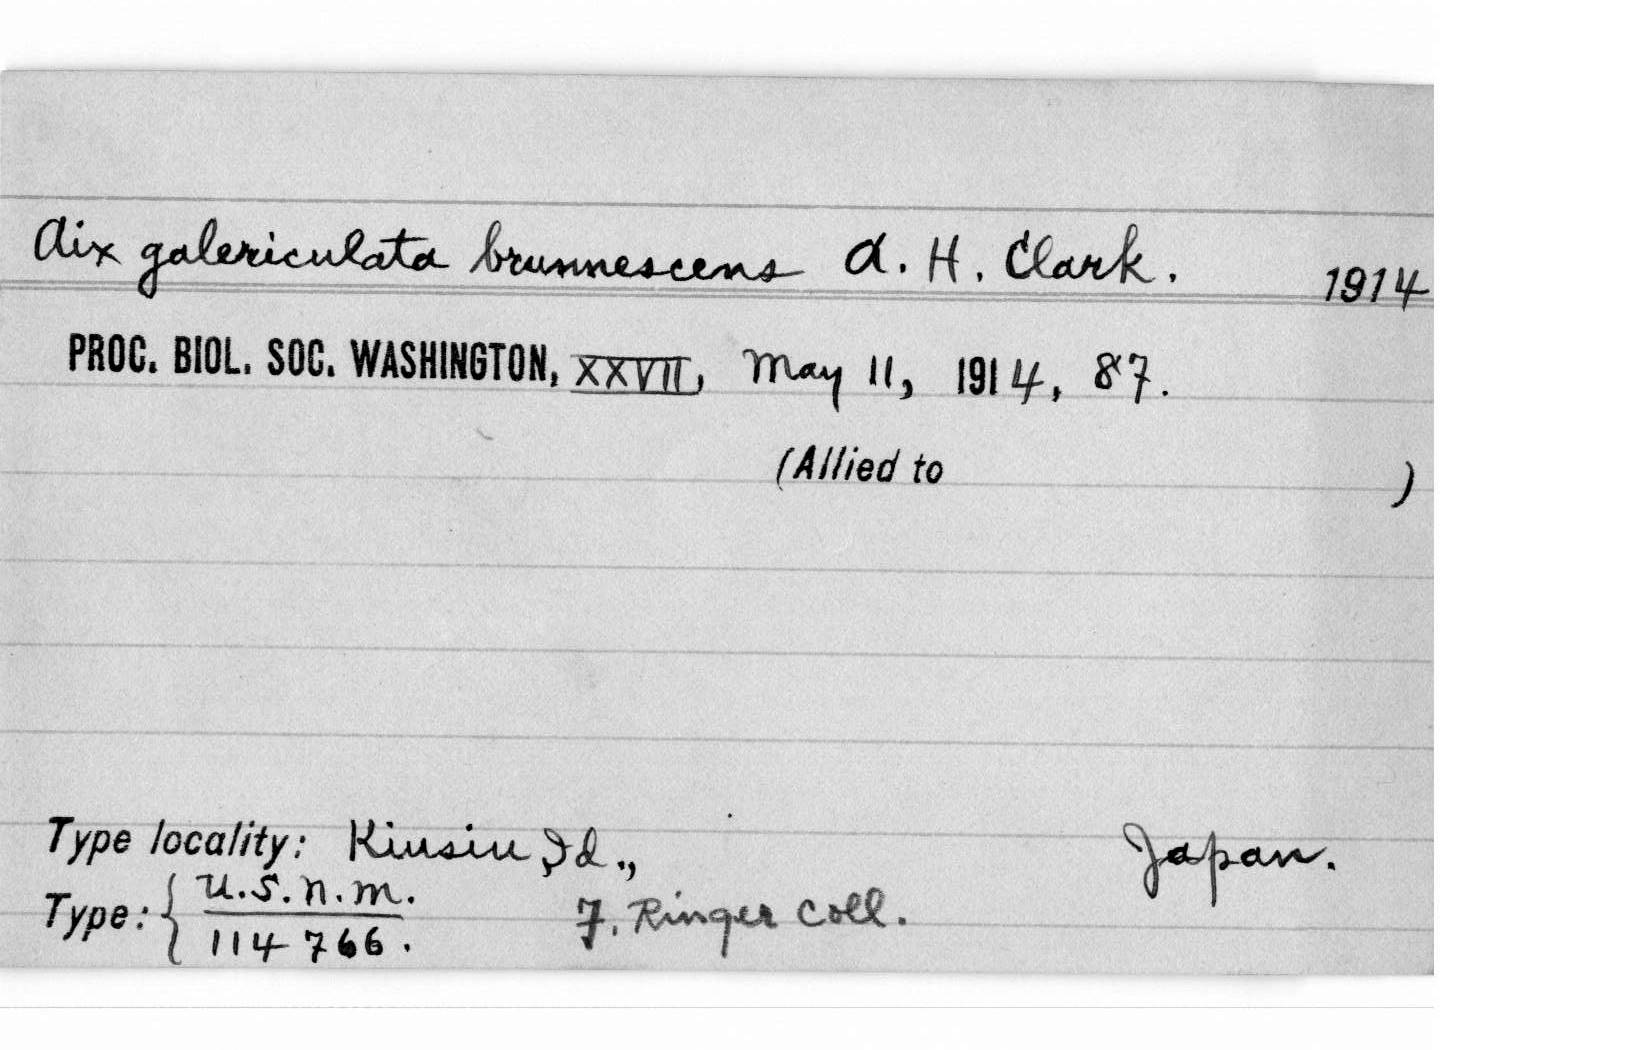 Aix galericulata brunnescens A. H. Clark. 1914
PROC. BIOL. SOC. WASHINGTON, XXVII, May 11, 1914, 87.
(Allied to )
Type locality: Kiusiu Id., Japan.
Type: { U.S.N.M. F. Ringer Coll.
114766.